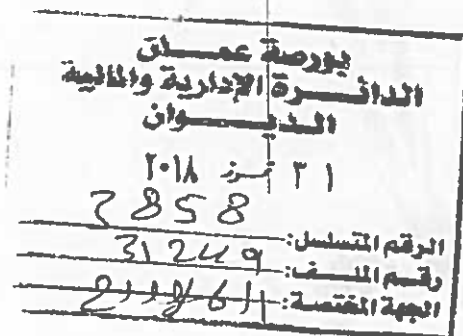 بورصة عمان
الدائرة الإدارية والمالية
الديوان
٣١ تموز ٢٠١٨
3858
الرقم المتسلسل:
رقم الملف: 31249
الجهة المختصة: